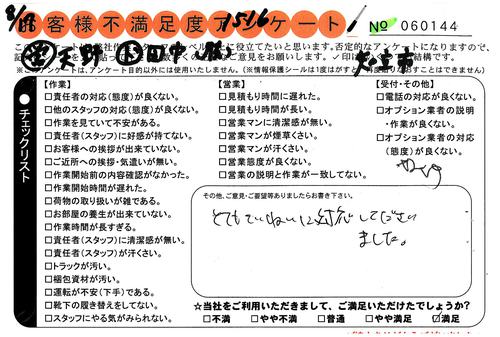 8/19 お客様不満足度アンケート! 1516
№ 060144
矢野 田中
【作業】
□責任者の対応(態度)が良くない。
□他のスタッフの対応(態度)が良くない。
□作業を見ていて不安がある。
□責任者(スタッフ)に好感が持てない。
□お客様への挨拶が出来ていない。
□ご近所への挨拶・気遣いが無い。
□作業開始前の内容確認がなかった。
□作業開始時間が遅れた。
□荷物の取り扱いが雑である。
□お部屋の養生が出来ていない。
□作業時間が長すぎる。
□責任者(スタッフ)に清潔感が無い。
□責任者(スタッフ)が汗くさい。
□トラックが汚い。
□梱包資材が汚い。
□運転が不安(下手)である。
□靴下の履き替えをしてない。
□スタッフにやる気がみられない。
【営業】
□見積もり時間に遅れた。
□見積もり時間が長い。
□営業マンに清潔感が無い。
□営業マンが煙草くさい。
□営業マンが汗くさい。
□営業態度が良くない。
□営業の説明と作業が一致してない。
【受付・その他】
□電話の対応が良くない。
□オプション業者の説明
・作業が良くない。
□オプション業者の対応
(態度)が良くない。
その他、ご意見・ご要望等ありましたらお書き下さい。
とてもていねいに対応してださい
ました。
☆当社をご利用いただきまして、ご満足いただけたでしょうか?
□不満 □やや不満 □普通 □やや満足 ☑満足
●チェックリスト